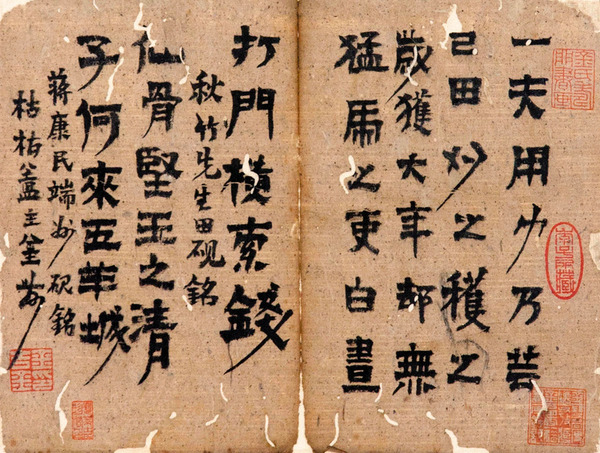 一夫用力乃芸
己田刈之穫之
歲獲大年却無
猛乕之吏白晝
打門橫索錢
秋竹先生田硯銘
仙骨堅玉之清
子何來五羊城
蔣康民端州硯銘
枯盦主金農